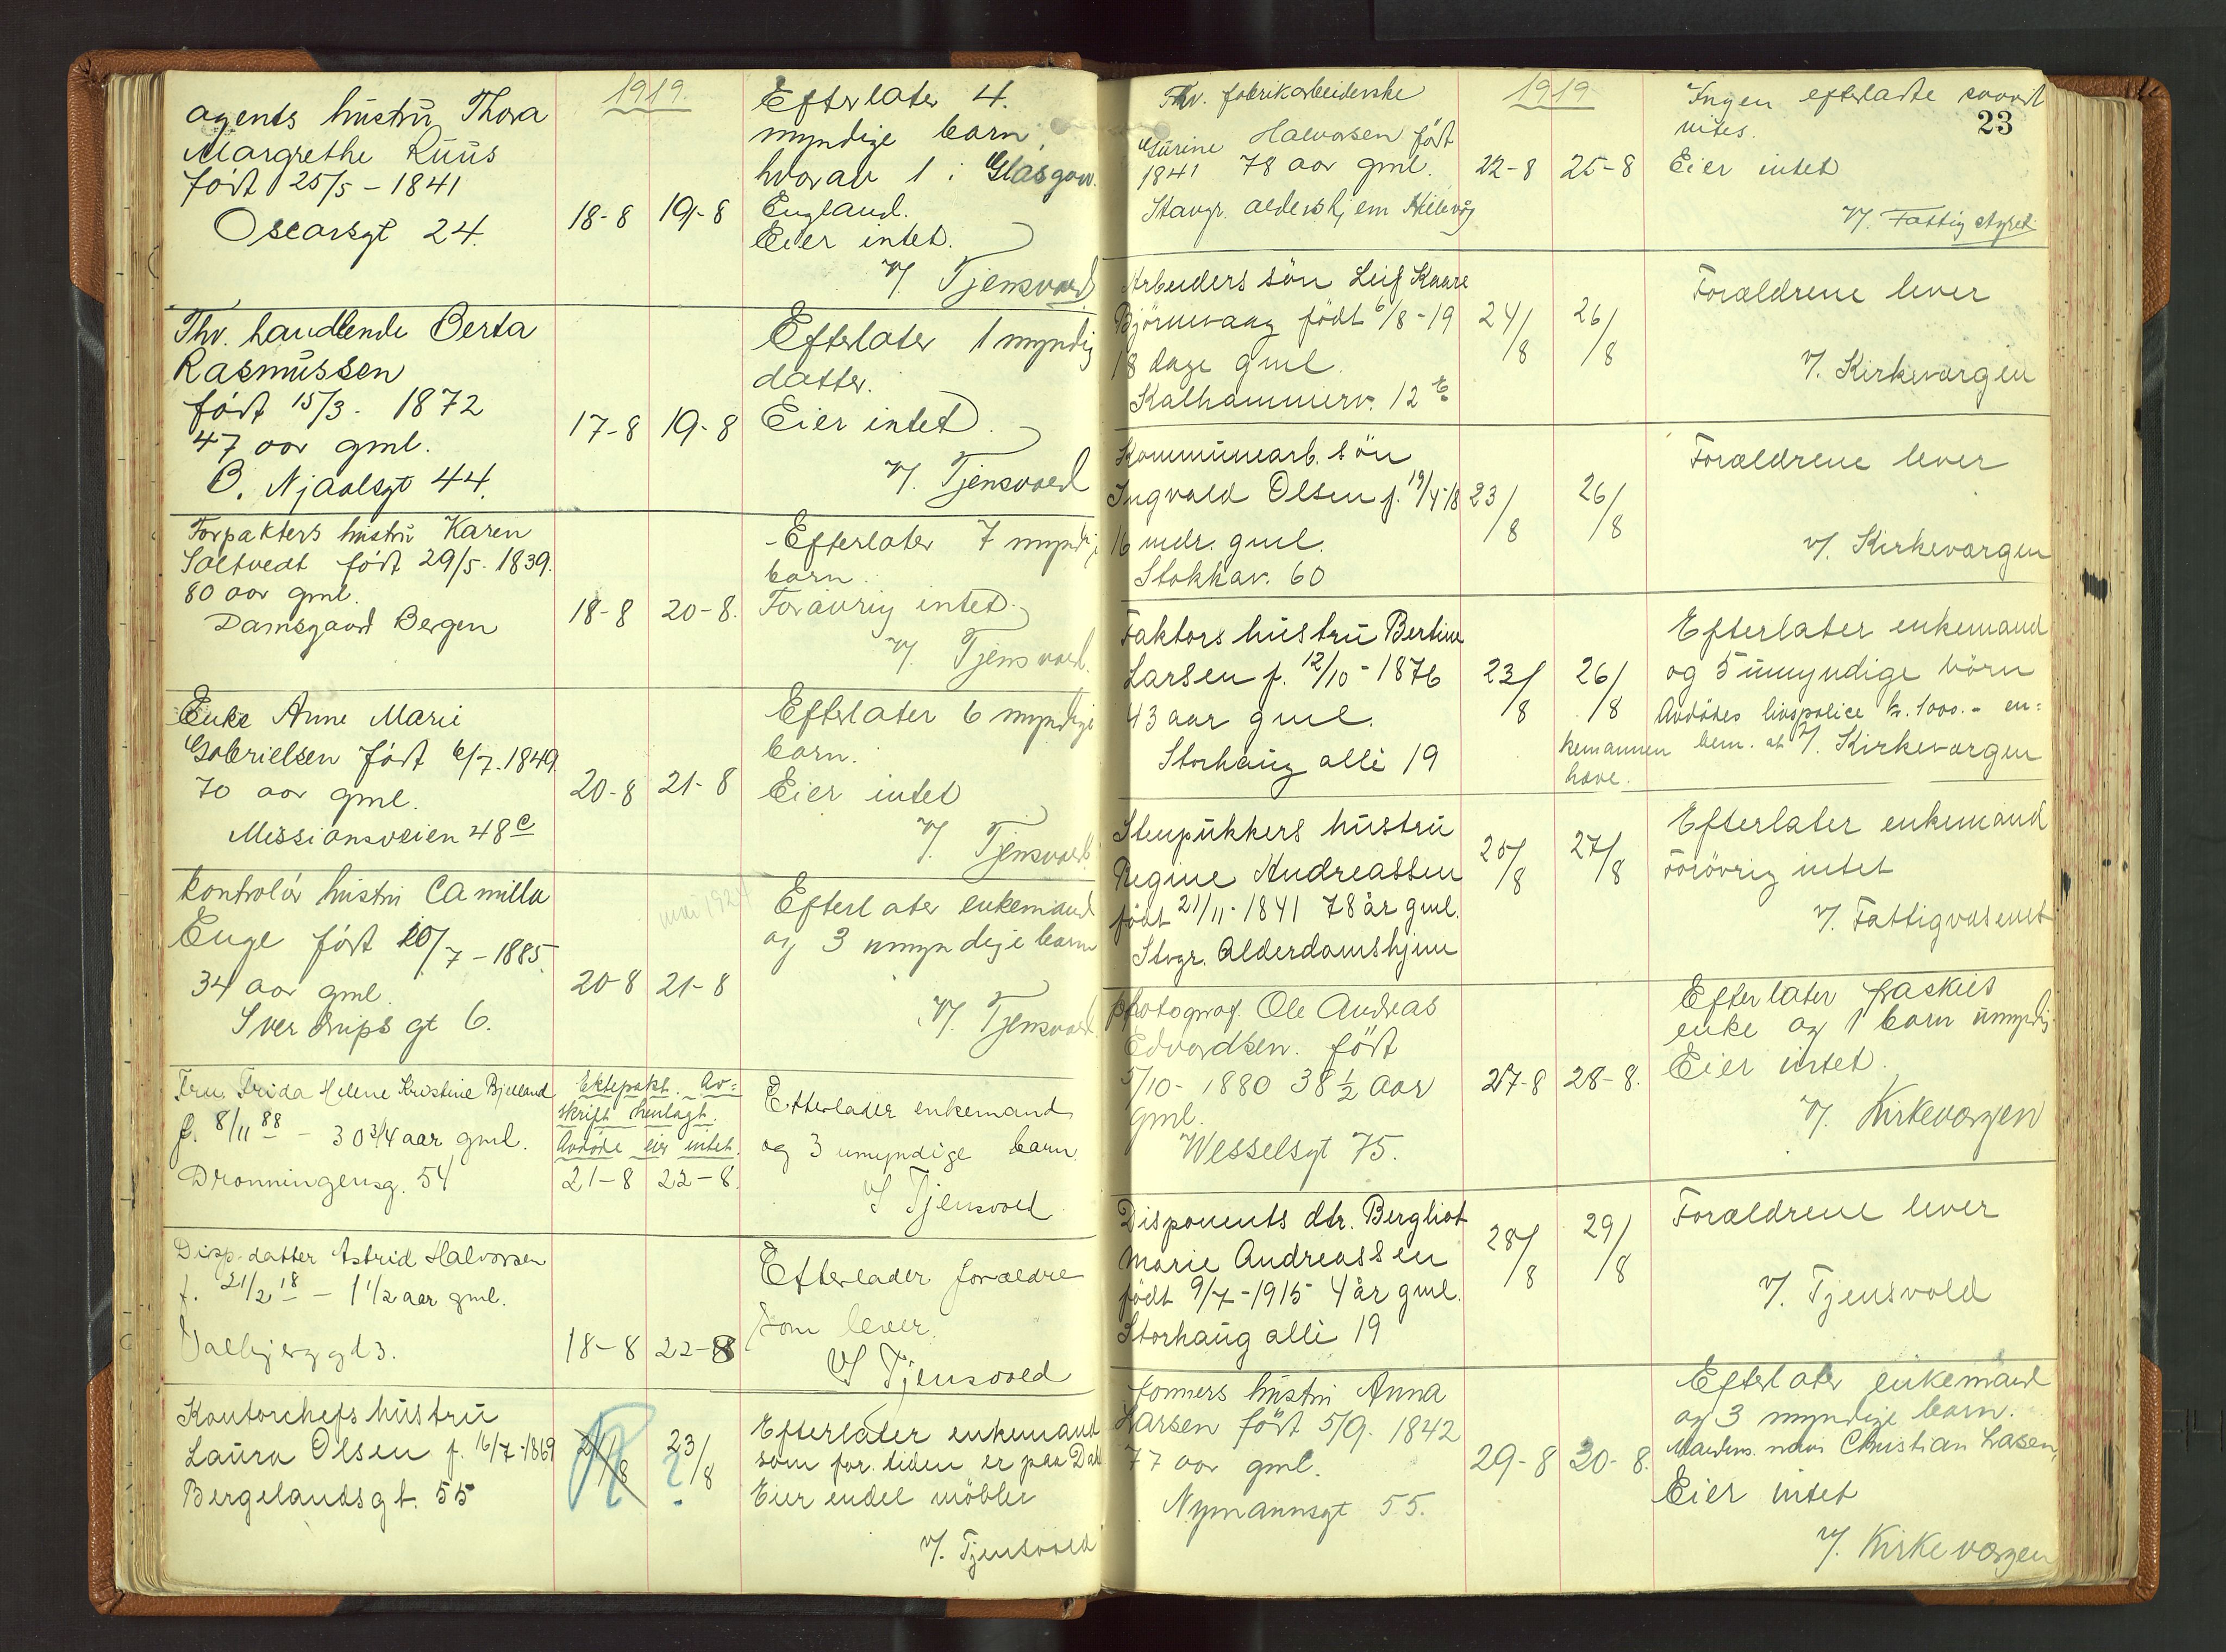 1919.
agents hustru Thora
Margrethe Ruus
født 25/5 - 1841
Oscarsgt 24.
18-8 19-8
Efterlater 4.
myndige barn,
hvorav 1 i Glasgow.
England.
Eier intet.
v/ Tjensvold
Thv. handlende Berta
Rasmussen
født 15/3 - 1872
47 aar gml.
B. Njaalsgt 44.
17-8 19-8
Efterlater 1 myndig
datter.
Eier intet.
v/ Tjensvold
Forpakters hustru Karen
Saltvedt født 29/5. 1839.
80 aar gml.
Damsgaard Bergen
18-8 20-8.
- Efterlater 7 myndig
barn.
Forøvrig intet.
v/ Tjensvold.
Enke Anne Marie
Gabrielsen født 6/7. 1849.
70 aar gml.
Missionsveien 48 c
20-8 21-8
Efterlater 6 myndige
barn.
Eier intet
v/ Tjensvold
kontrolør hustru Camilla
Enge født 10/7 - 1885.
34 aar gml.
Sverdrups gt 6.
mai 1927
20-8 21-8
Efterlater enkemand
og 3 umyndige barn
v/ Tjensvold.
Fru Frida Helene Kristine Bjelland
f. 8/11 88 - 30 3/4 aar gml.
Dronningensg. 54
Ektepakt. Av=
skrift henlagt.
Avdøde eier intet.
21-8 22-8.
Efterlader enkemand
og 3 umyndige barn
v/ Tjensvold
Disp. datter Astrid Halvorsen
f. 21/2 18 - 1 1/2 aar gml.
Valbjerg gt 3.
18-8 22-8
Efterlader forældre
som lever.
v/ Tjensvold
Kontorchefs hustru
Laura Olsen f. 16/7 - 1869
Bergelandsgt. 55
21/8 23/8
Efterlater enkemand
som for tiden er paa Dal
Eier endel møbler
v/. Tjensvold
1919
23
Thv. fabrikarbeiderske
Gurine Halvorsen født
1841 78 aar gml.
Stavgr. aldershjem Hillevåg
22-8 25-8
Ingen efterladte saavidt
vites.
Eier intet
v/. Fattigstyret.
Arbeiders søn Leif Kaare
Bjørnevaag født 6/8-19
18 dage gml.
Kalhammerv. 12 b
24/8 26/8
Forældrene lever
v/. Kirkevergen
Kommunearb. søn
Ingvald Olsen f. 19/4-18
16 mdr. gml.
Stokkav. 60
23/8 26/8
Forældrene lever
v/. Kirkevergen
Faktors hustru Bertine
Larsen f. 12/10 - 1876
43 aar gml.
Storhaug allé 19
23/8 26/8
Efterlater enkemand
og 5 umyndige børn
Avdødes livspolice kr. 1000.- en=
kemannen bem. at v/. Kirkevergen
have.
Stenpukkers hustru
Regine Andreassen
født 21/11-1841 78 år gml.
Stvgr. Alderdomshjem
25/8 27/8
Efterlater enkemand
forøvrig intet
v/. Fattigvæsenet
photograf. Ole Andreas
Edvardsen. født
5/10 - 1880 38 1/2 aar
gml.
Wesselsgt 75.
27-8 28-8.
Efterlater fraskilt
enke og 1 barn umyndig.
Eier intet.
v/. Kirkevergen
Disponents dtr. Bergliot
Marie Andreassen
født 9/7-1915 4 år gml.
Storhaug allé 19
28/8 29/8
Forældrene lever
v/. Tjensvold
formers hustru Anna
Larsen født 5/9. 1842
77 aar gml.
Nymannsgt 55.
29-8 30-8.
Efterlater enkemand
og 3 myndige barn.
Mandens navn Christian Lasen,
Eier intet
v/. Kirkevergen